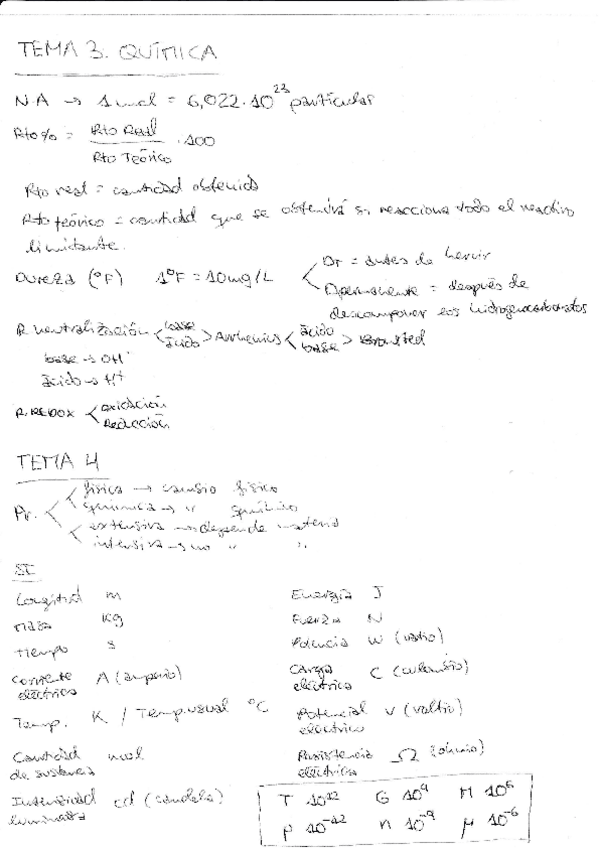 TEMA 3. QUÍMICA
N.A → 1 mol = 6,022·10^23 partículas
Rto% = Rto Real / Rto Teórico · 100
Rto real = cantidad obtenida
Rto teórico = cantidad que se obtendrá si reacciona todo el reactivo
limitante.
Dureza (°F) 1°F = 10mg/L < DT = antes de hervir
Dpermanente = después de
descomponer los hidrogenocarbonatos
R neutralización < base ácido > Arrhenius < ácido base > Bronsted
base → OH⁻
ácido → H⁺
R.REDOX < oxidación
Reducción
TEMA 4
Pr. < física → cambio físico
química → " químico
extensiva → depende materia
intensiva → no " "
SI
Longitud m
Masa Kg
Tiempo s
Corriente eléctrica A (amperio)
Temp. K / Temp. usual °C
Cantidad de sustancia mol
Intensidad luminosa cd (candela)
Energía J
Fuerza N
Potencia W (vatio)
Carga eléctrica C (culombio)
Potencial eléctrico V (voltio)
Resistencia eléctrica Ω (ohmio)
T 10^12 G 10^9 M 10^6
p 10^-12 n 10^-9 μ 10^-6